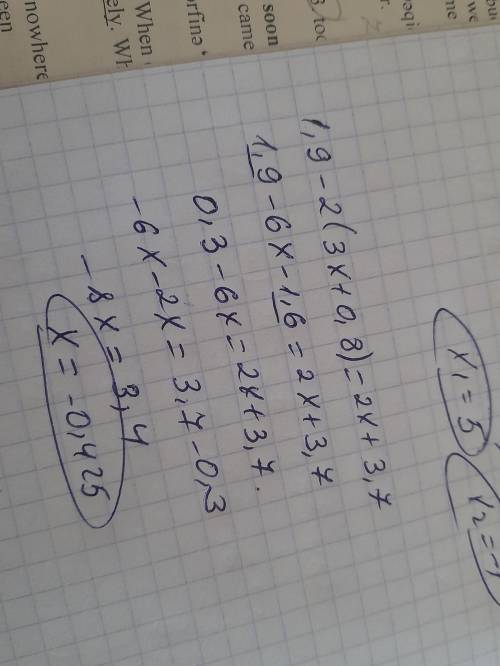 x₁ = 5 x₂ = -1
1,9 - 2(3x+0,8) = 2x + 3,7
1,9 - 6x - 1,6 = 2x + 3,7
0,3 - 6x = 2x + 3,7.
-6x - 2x = 3,7 - 0,3
-8x = 3,4
x = -0,425
soon
came
orfinə
When
ely. Wh
nowhere
een